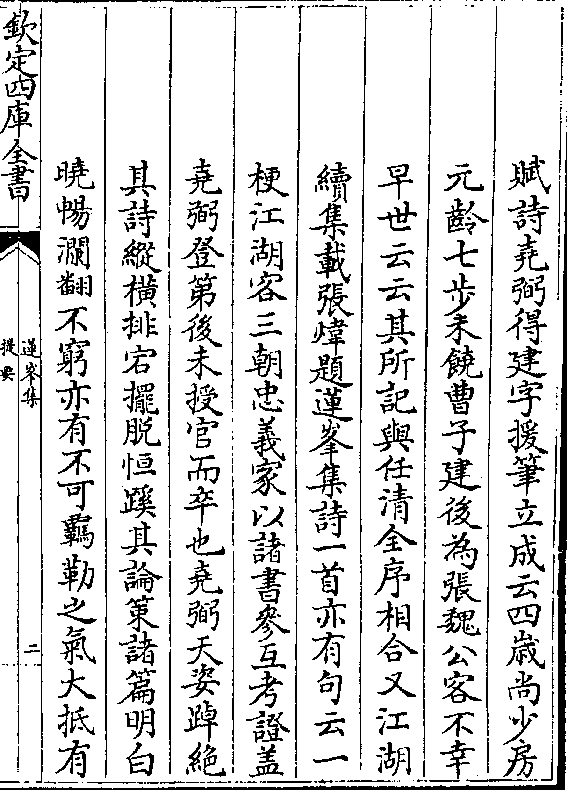 賦詩堯弼得建字援筆立成云四歳尚少房
元齡七步未饒曹子建後為張魏公客不幸
早世云云其所記與任清全序相合又江湖
續集載張煒題蓮峯集詩一首亦有句云一
梗江湖客三朝忠義家以諸書叅互考證盖
堯弼登第後未授官而卒也堯弼天姿踔絶
其詩縱橫排宕擺脱恒蹊其論策諸篇明白
曉暢瀾翻不窮亦有不可羈勒之氣大抵有
欽定四庫全書
蓮峯集
提要
二